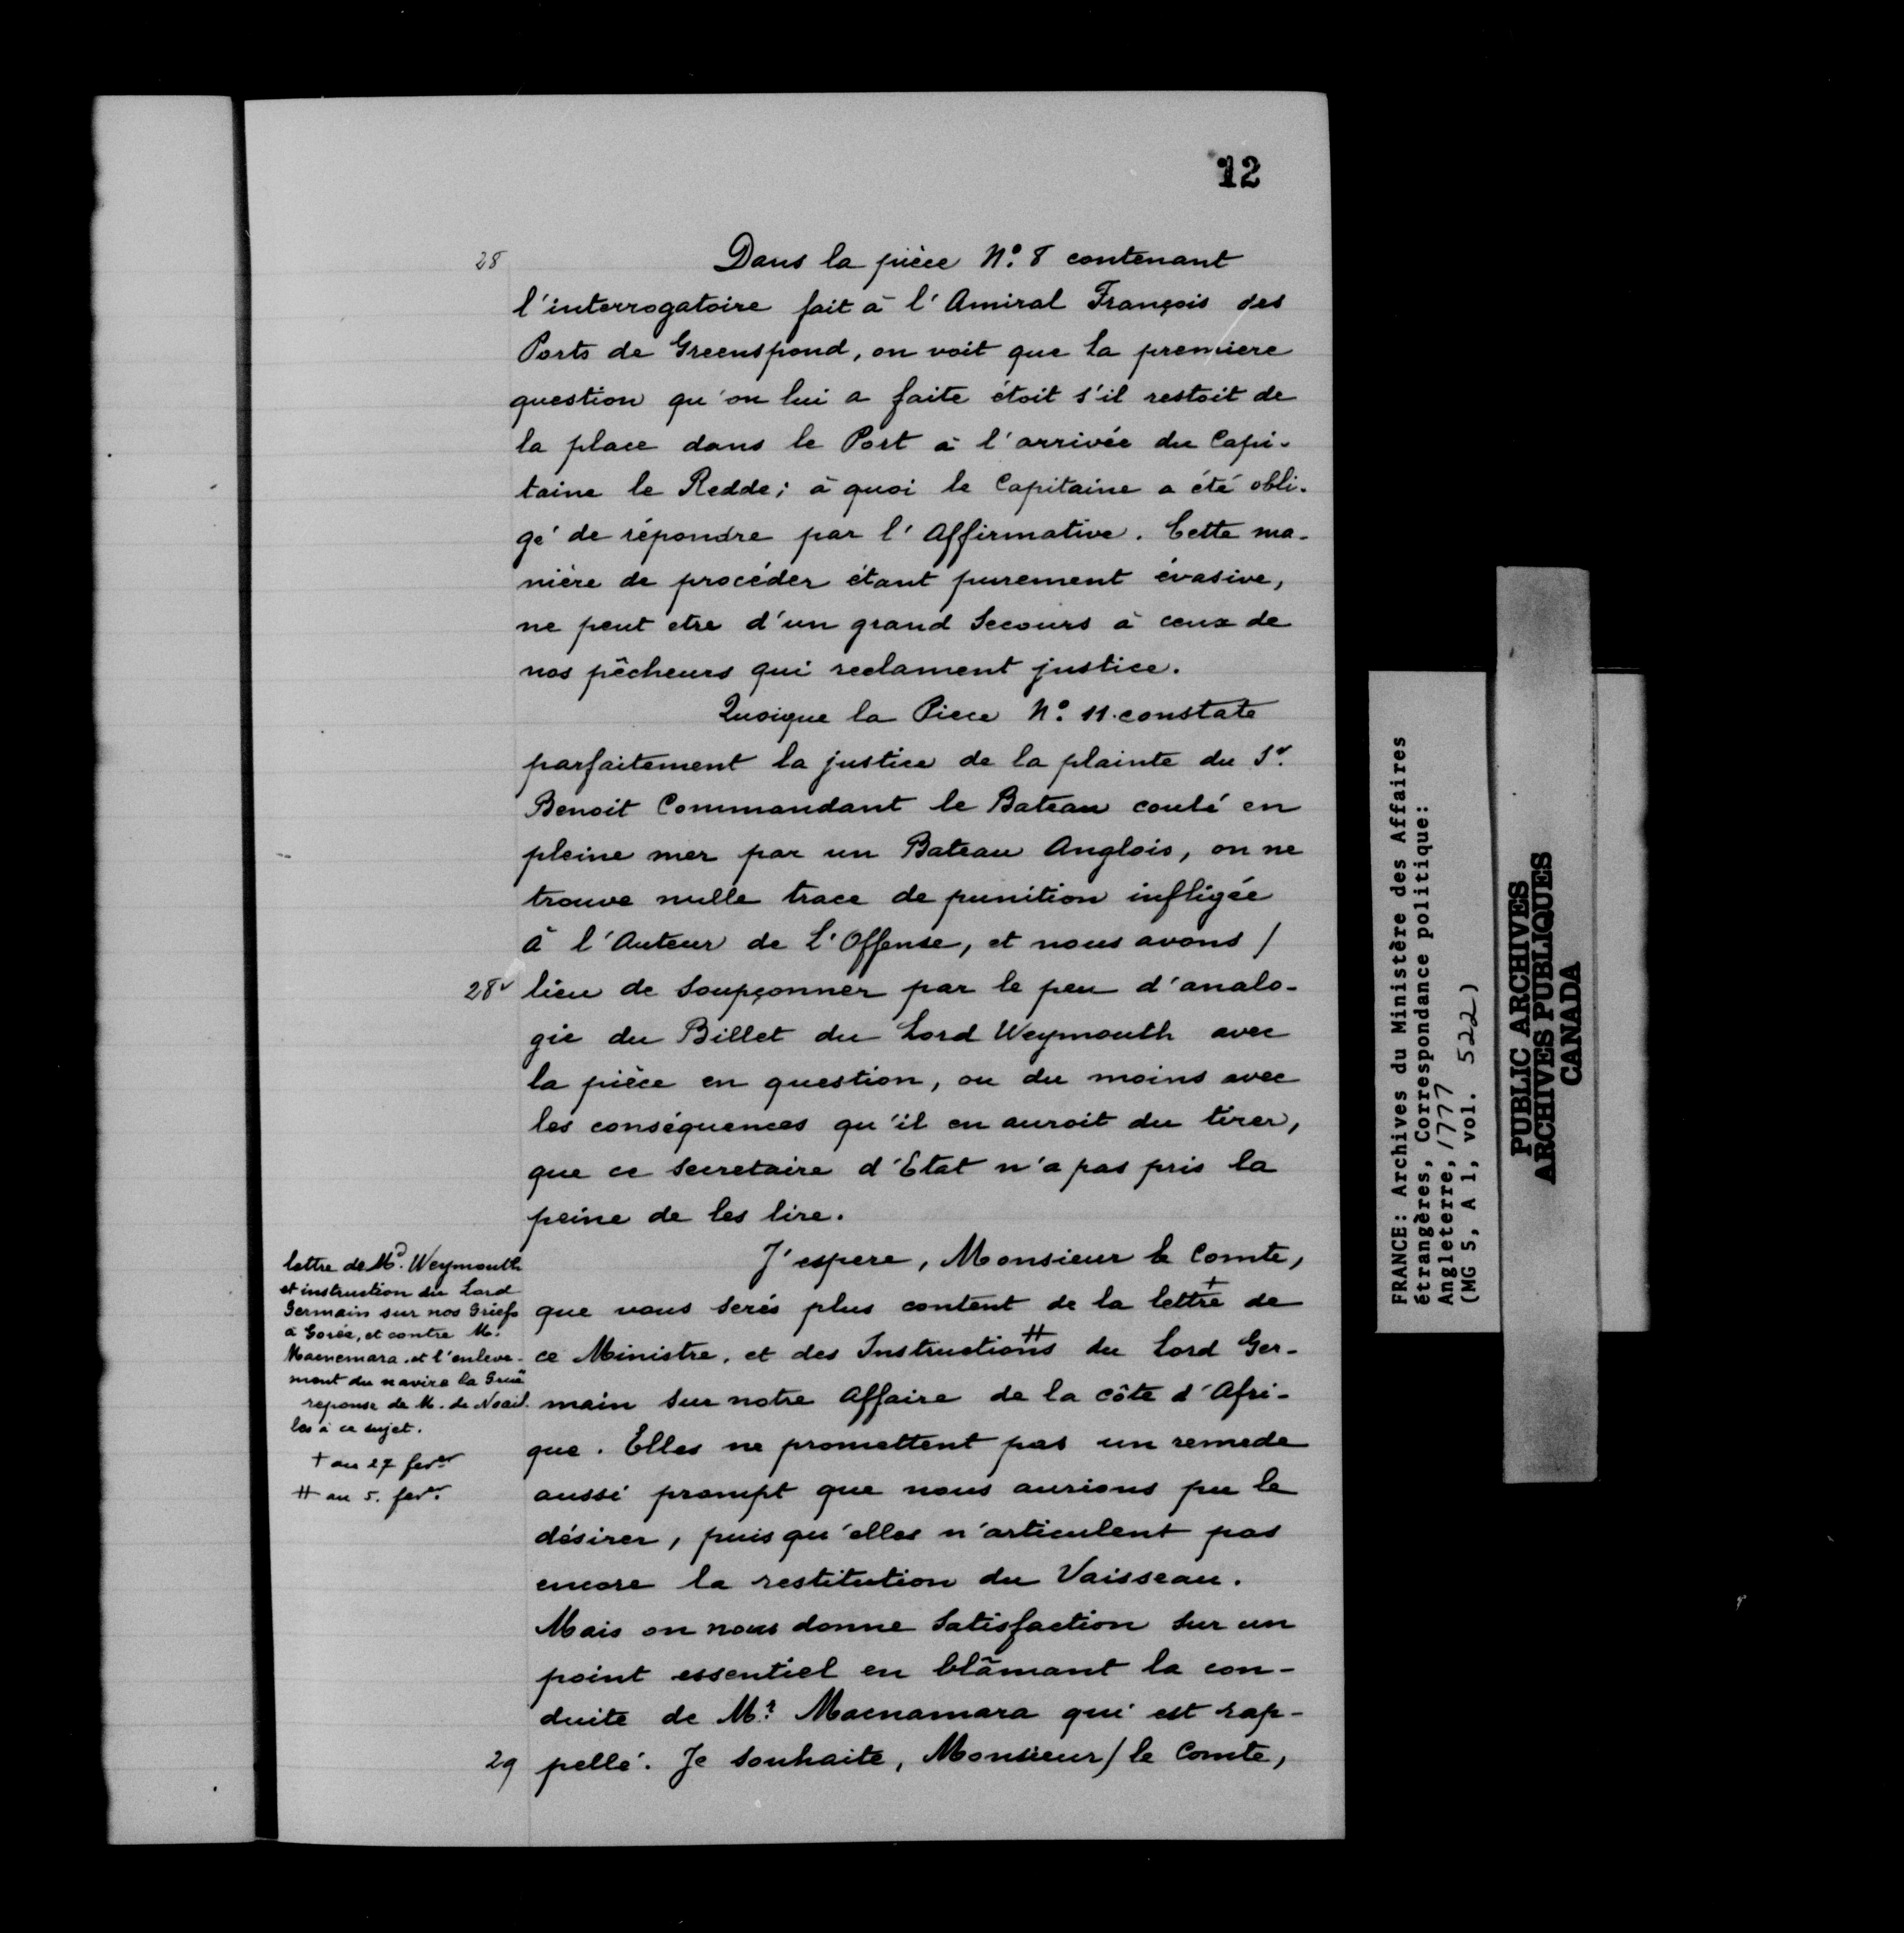 12
28
Dans la pièce N.° 8 contenant
l'interrogatoire fait à l'Amiral François des
Ports de Greenspond, on voit que la premiere
question qu'on lui a faite étoit s'il restoit de
la place dans le Port à l'arrivée du Capi-
taine le Redde; à quoi le Capitaine a été obli-
gé de répondre par l'Affirmative. Cette ma-
nière de procéder étant purement évasive,
ne peut etre d'un grand Secours à ceux de
nos pêcheurs qui reclament justice.
Quoique la Piece N.° 11. constate
parfaitement la justice de la plainte du S.r
Benoit Commandant le Bateau coulé en
pleine mer par un Bateau Anglois, on ne
trouve nulle trace de punition infligée
à l'Auteur de l'Offense, et nous avons /
28v lieu de Soupçonner par le peu d'analo-
gie du Billet du Lord Weymouth avec
la pièce en question, ou du moins avec
les conséquences qu'il en auroit du tirer,
que ce Secretaire d'Etat n'a pas pris la
peine de les lire.
J'espere, Monsieur le Comte,
que vous serés plus content de la lettre + de
ce Ministre, et des Instructions # du Lord Ger-
main sur notre Affaire de la côte d'Afri-
que. Elles ne promettent pas un remede
aussi prompt que nous aurions pu le
désirer, puis qu'elles n'articulent pas
encore la restitution du Vaisseau.
Mais on nous donne Satisfaction sur un
point essentiel en blâmant la con-
duite de M.r Macnamara qui est rap-
29 pellé. Je souhaite, Monsieur / le Comte,
lettre de M.d Weymouth
et instruction du Lord
Germain sur nos Griefs
à Gorée, et contre M.
Macnemara. et l'enleve-
ment du navire la Gruë
reponse de M. de Noail-
les à ce sujet.
+ au 27 fevr
# au 5. fevr.
FRANCE: Archives du Ministère des Affaires
étrangères, Correspondance politique:
Angleterre, 1777
(MG 5, A 1, vol. 522)
PUBLIC ARCHIVES
ARCHIVES PUBLIQUES
CANADA